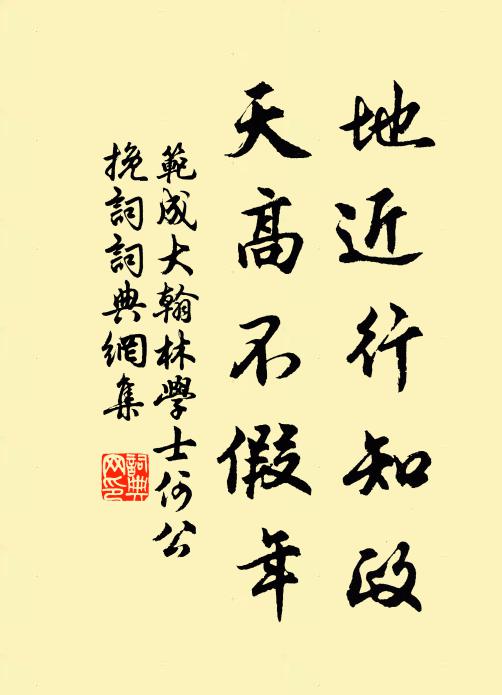 地近行知政
天高不假年
範成大翰林學士何公
挽詞詞典網集
詞典
网印